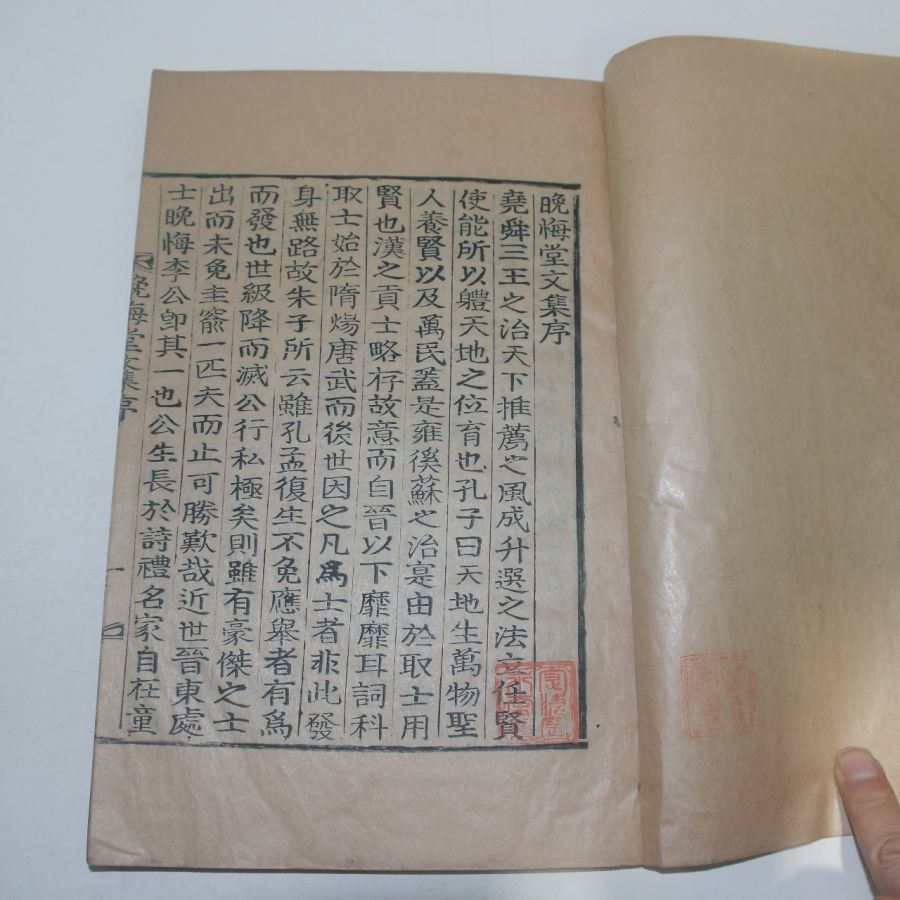 晩悔堂文集序
堯舜三王之治天下推薦之風成升選之法立任賢
使能所以軆天地之位育也孔子曰天地生萬物聖
人養賢以及萬民盖是雍徯蘇之治寔由於取士用
賢也漢之貢士略存故意而自晉以下靡靡耳詞科
取士始於隋煬唐武而後世因之凡爲士者非此發
身無路故朱子所云雖孔孟復生不免應擧者有爲
而發也世級降而滅公行私極矣則雖有豪傑之士
出而未免圭竇一匹夫而止可勝歎哉近世晉東處
士晩悔李公卽其一也公生長於詩禮名家自在童
晩悔堂文集序
一